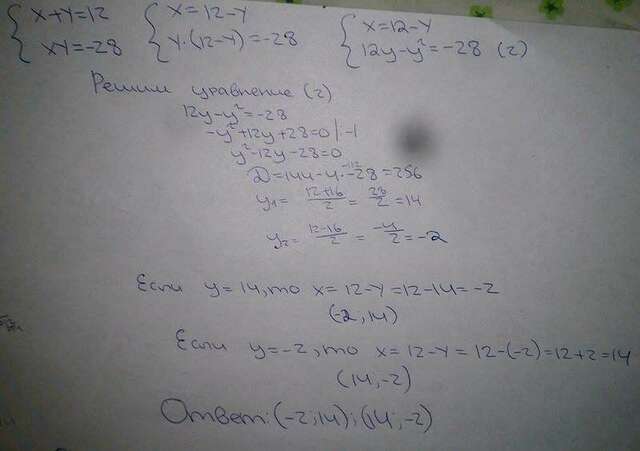 { x+y=12 { x=12-y { x=12-y
xy=-28 y·(12-y)=-28 12y-y²=-28 (2)
Решим уравнение (2)
12y-y²=-28
-y²+12y+28=0 |·-1
y²-12y-28=0
-112
D=144-4·-28=256
y₁= 12+16/2 = 28/2 =14
y₂= 12-16/2 = -4/2 =-2
Если y=14, то x=12-y=12-14=-2
(-2;14)
Если y=-2, то x=12-y=12-(-2)=12+2=14
(14;-2)
Ответ: (-2;14); (14;-2)